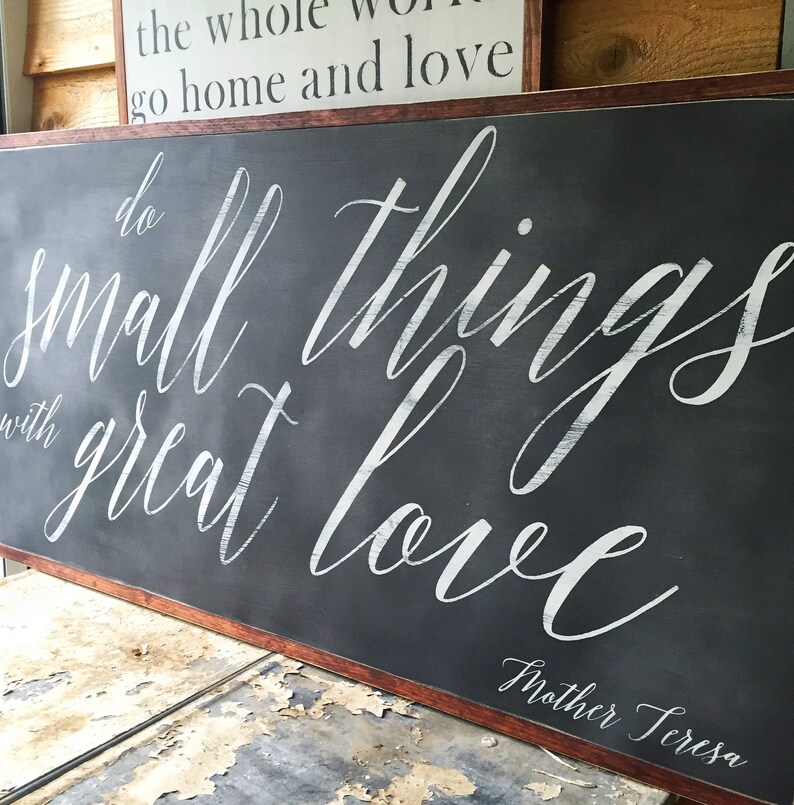 the whole world
go home and love
do
small things
with great love
Mother Teresa